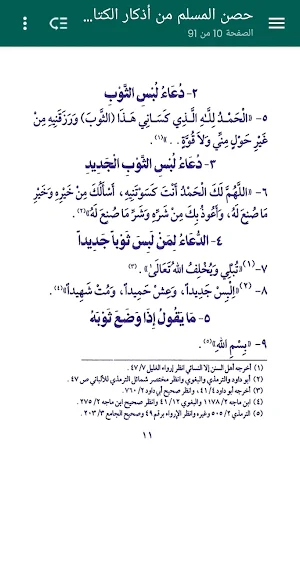 حصن المسلم من أذكار الكتا...
الصفحة 10 من 91
٢- دُعَاءُ لُبْسِ الثَّوْبِ
٥- «الْحَمْدُ لِلَّهِ الَّذِي كَسَانِي هَذَا (الثَّوْبَ) وَرَزَقَنِيهِ مِنْ
غَيْرِ حَوْلٍ مِنِّي وَلَا قُوَّةٍ . . .»(١).
٣- دُعَاءُ لُبْسِ الثَّوْبِ الْجَدِيدِ
٦- «اللَّهُمَّ لَكَ الْحَمْدُ أَنْتَ كَسَوْتَنِيهِ، أَسْأَلُكَ مِنْ خَيْرِهِ وَخَيْرِ
مَا صُنِعَ لَهُ، وَأَعُوذُ بِكَ مِنْ شَرِّهِ وَشَرِّ مَا صُنِعَ لَهُ»(٢).
٤- الدُّعَاءُ لِمَنْ لَبِسَ ثَوْباً جَدِيداً
٧-(١) «تُبْلِي وَيُخْلِفُ اللهُ تَعَالَىٰ»(٣).
٨-(٢) «اِلْبَسْ جَدِيداً، وَعِشْ حَمِيداً، وَمُتْ شَهِيداً»(٤).
٥- مَا يَقُولُ إِذَا وَضَعَ ثَوْبَهُ
٩- «بِسْمِ اللهِ»(٥).
(١) أخرجه أهل السنن إلا النسائي انظر إرواء الغليل ٧/ ٤٧.
(٢) أبو داود والترمذي والبغوي وانظر مختصر شمائل الترمذي للألباني ص ٤٧.
(٣) أخرجه أبو داود ٤/ ٤١، وانظر صحيح أبي داود ٢/ ٧٦٠.
(٤) ابن ماجه ٢/ ١١٧٨ والبغوي ١٢/ ٤١ وانظر صحيح ابن ماجه ٢/ ٢٧٥.
(٥) الترمذي ٢/ ٥٠٥ وغيره وانظر الإرواء برقم ٤٩ وصحيح الجامع ٣/ ٢٠٣.
١١